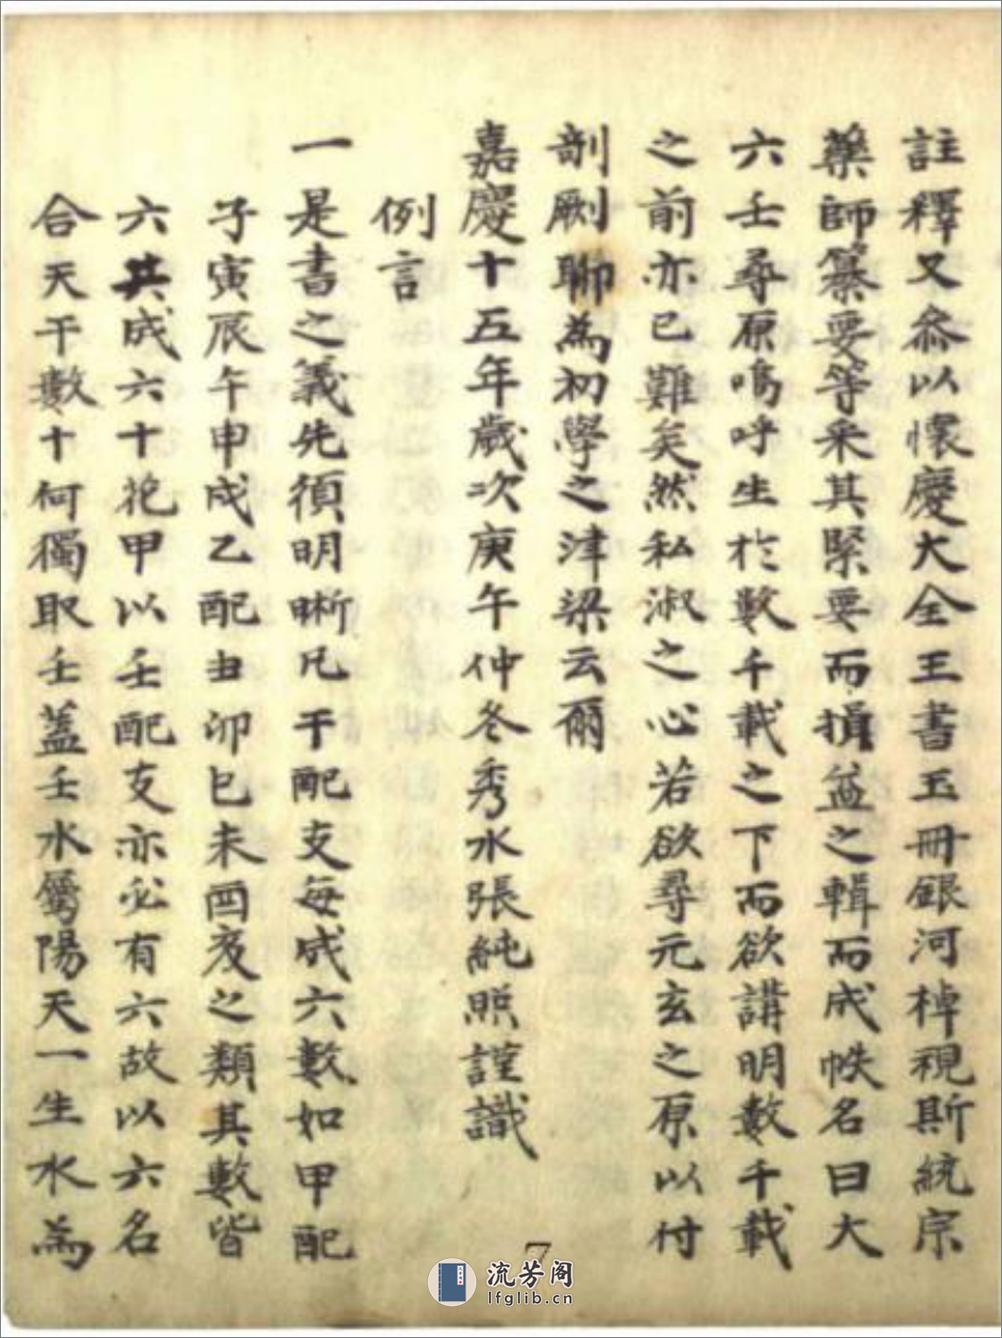 註釋又叅以懷慶大全王書玉冊銀河棹視斯統宗
藥師纂要等釆其緊要而損益之輯而成帙名曰大
六壬尋原嗚呼生於數千載之下而欲講明數千載
之前亦已難矣然私淑之心若欲尋元玄之原以付
剞劂聊為初學之津梁云爾
嘉慶十五年歲次庚午仲冬秀水張純照謹識
例言
一是書之義先須明晰凡干配支每成六數如甲配
子寅辰午申戌乙配丑卯巳未酉亥之類其數皆
六共成六十花甲以壬配支亦必有六故以六名
合天干數十何獨取壬蓋壬水屬陽天一生水為
7
流芳阁
lfglib.cn